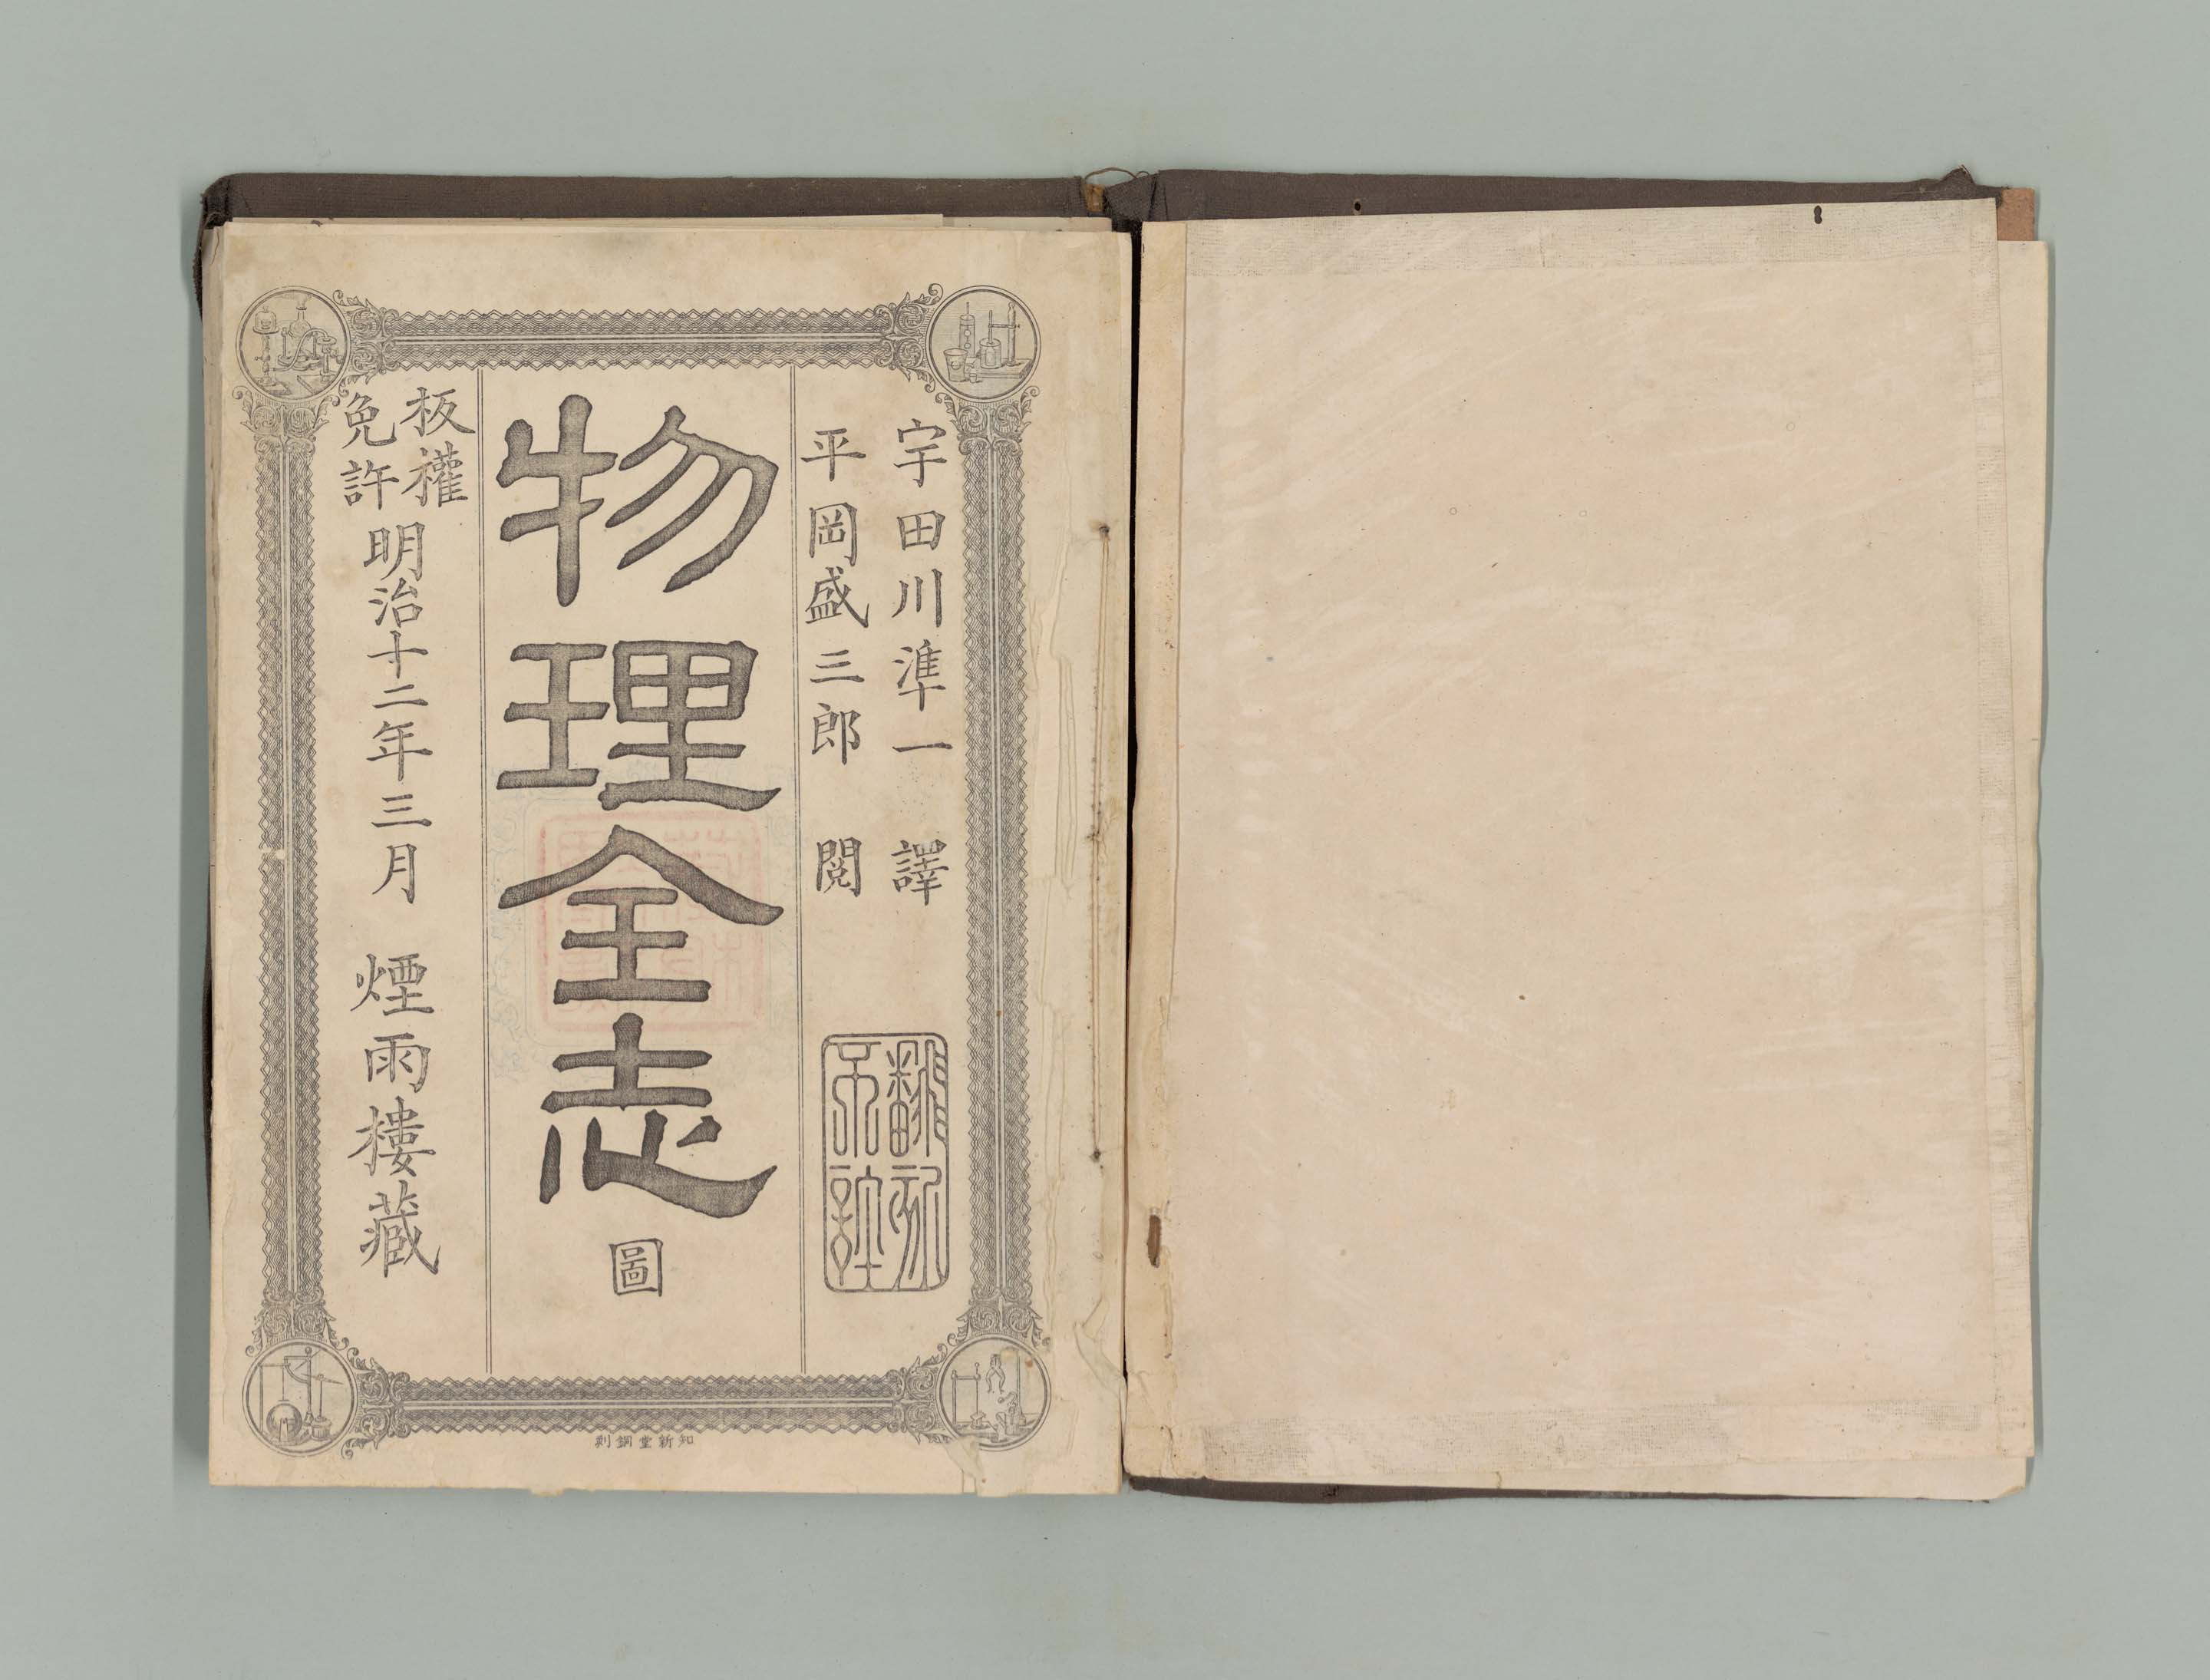 宇田川準一 譯
平岡盛三郎 閲
翻刻
不許
物理全志 圖
板權
免許
明治十二年三月 煙雨樓藏
知新堂銅刻